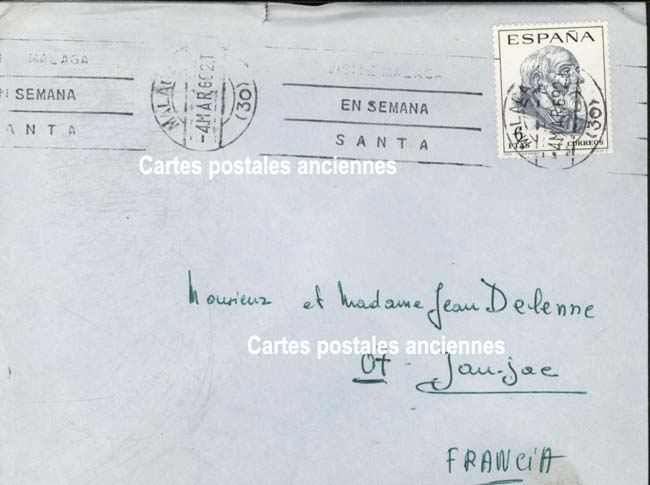 ESPAÑA
6
PTAS CORREOS
MALAGA
EN SEMANA
SANTA
MALAGA
-4 MAR 69
(30)
VISITE MALAGA
EN SEMANA
SANTA
MALAGA
4 MAR 69
(30)
Cartes postales anciennes
Monsieur et Madame Jean Delenne
Cartes postales anciennes
07 - Jau-jac
FRANCIA